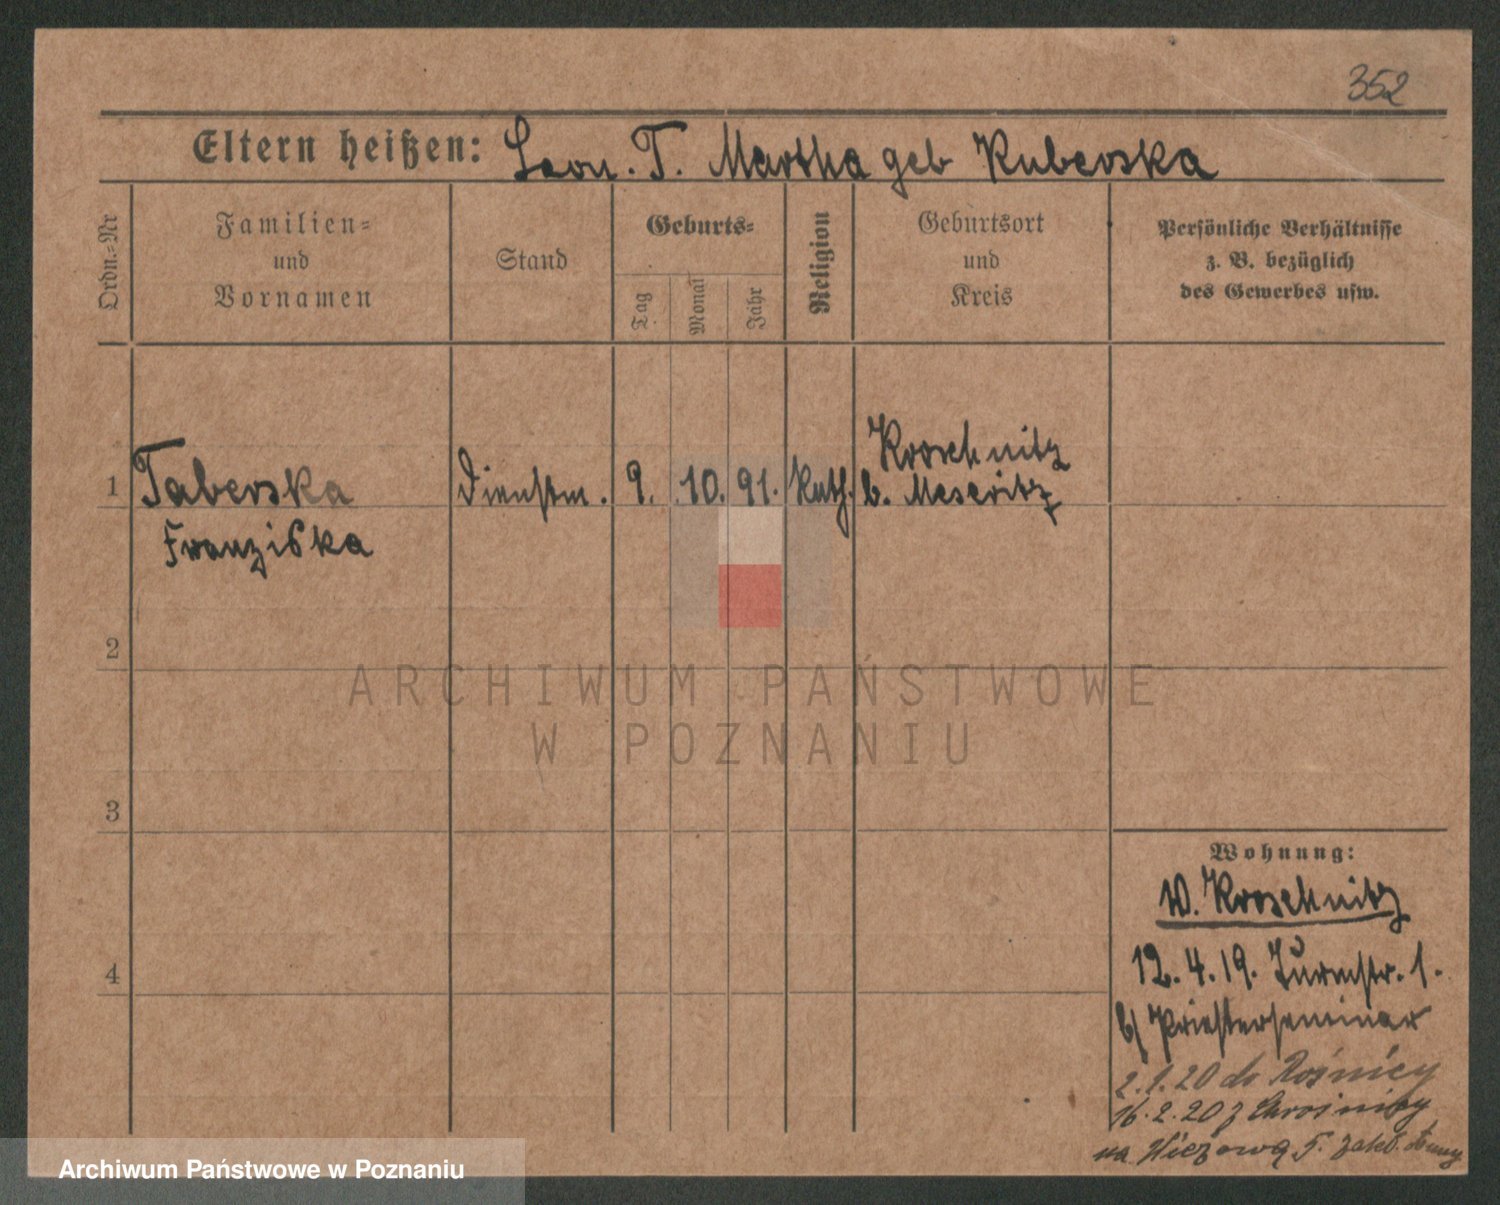 352
Eltern heißen: Leon. T. Martha geb Kuberska
Ordn.-Nr
Familien-
und
Vornamen
Stand
Geburts-
Tag
Monat
Jahr
Religion
Geburtsort
und
Kreis
Persönliche Verhältnisse
z. B. bezüglich
des Gewerbes usw.
1 Taberska Dienstm. 9. 10. 91. Kath. Kroschnitz
b. Meseritz
Franziska
2
3
4
Wohnung:
W. Kroschnitz
12. 4. 19. Turmstr. 1.
b/ Priesterseminar
2.1.20 do
16.2.20 z Chrośnicy
na Wieżową 5. zakł.
ARCHIWUM PAŃSTWOWE
W POZNANIU
Archiwum Państwowe w Poznaniu